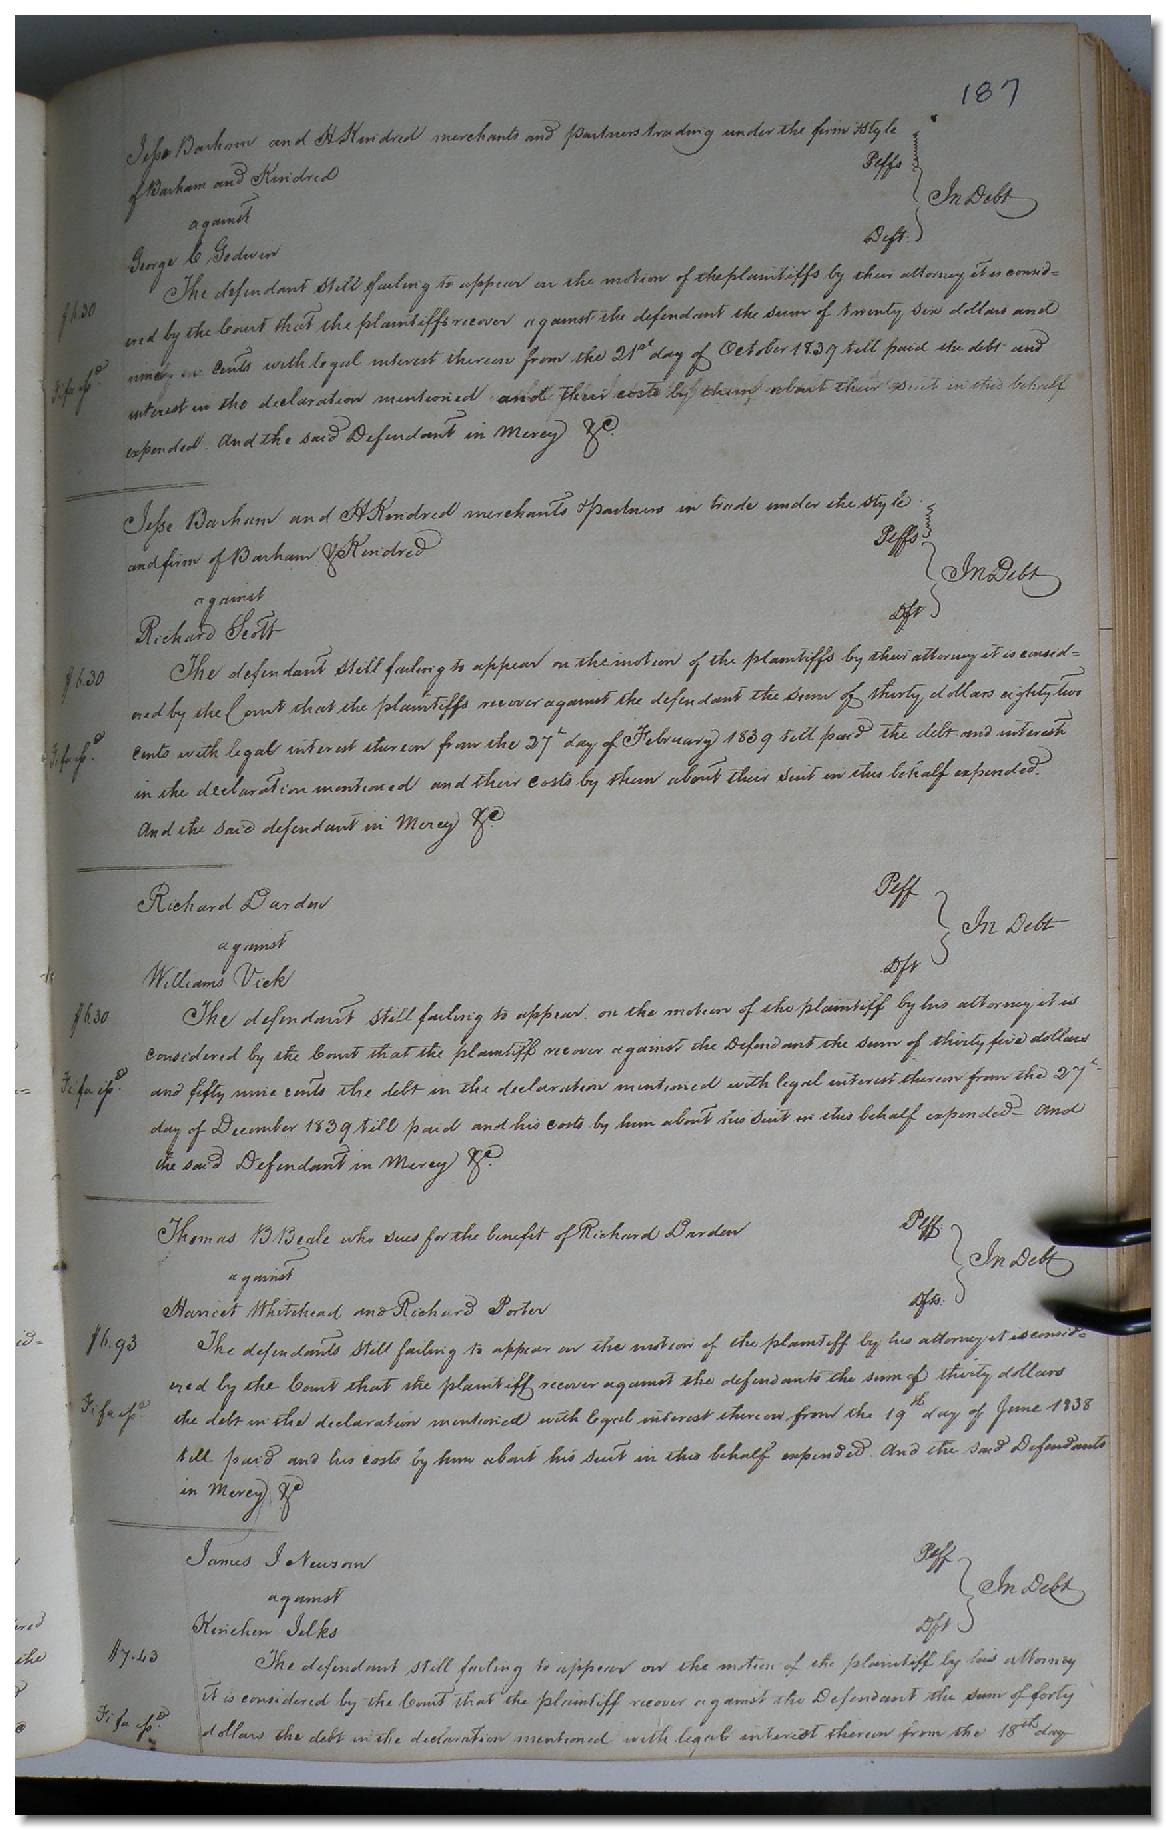 187
Jesse Barham and H Kindred merchants and partners trading under the firm & style
of Barham and Kindred Peffs
against In Debt
George C Godwin Deft.
$6.30 The defendant still failing to appear on the motion of the plaintiffs by their attorney it is consid=
ered by the Court that the plaintiffs recover against the defendant the sum of twenty six dollars and
cents with legal interest thereon from the 21st day of October 1839 till paid the debt and
Fi fa ipd. interest in the declaration mentioned and their costs by them about their suit in this behalf
expended. And the said Defendant in Mercy &c.
Jesse Barham and H Kindred merchants & partners in trade under the style
and firm of Barham & Kindred Peffs
against In Debt
Richard Scott Dft
$6.30 The defendant still failing to appear on the motion of the plaintiffs by their attorney it is consid=
ered by the Court that the plaintiffs recover against the defendant the sum of thirty dollars eighty two
Fi fa ipd. cents with legal interest thereon from the 27th day of February 1839 till paid the debt and interest
in the declaration mentioned and their costs by them about their suit in this behalf expended.
And the said defendant in Mercy &c
Richard Darden Peff
against In Debt
Williams Vick Dft
$6.30 The defendant still failing to appear on the motion of the plaintiff by his attorney it is
considered by the Court that the plaintiff recover against the Defendant the sum of thirty five dollars
Fi fa ipd. and fifty nine cents the debt in the declaration mentioned with legal interest thereon from the 27th
day of December 1839 till paid and his costs by him about his suit in this behalf expended= And
the said Defendant in Mercy &c.
Thomas B Beale who sues for the benefit of Richard Darden Peff
against In Debt
Harriet Whitehead and Richard Porter Dfts.
$6.93 The defendants still failing to appear on the motion of the plaintiff by his attorney it is consid=
ered by the Court that the plaintiff recover against the defendants the sum of thirty dollars
Fi fa ipd. the debt in the declaration mentioned with legal interest thereon from the 19th day of June 1838
till paid and his costs by him about his suit in this behalf expended. And the said Defendants
in Mercy &c
James J Newsom Peff
against In Debt
Kinchen Jelks Dft
$7.43 The defendant still failing to appear on the motion of the plaintiff by his attorney
it is considered by the Court that the plaintiff recover against the Defendant the sum of forty
Fi fa ipd. dollars the debt in the declaration mentioned with legal interest thereon from the 18th day